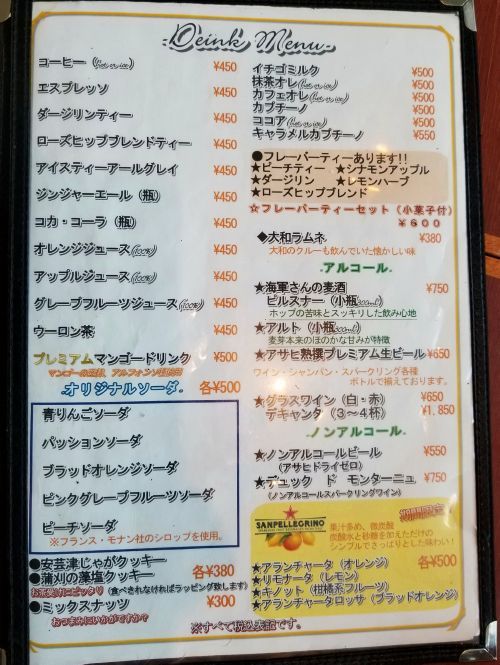 Drink Menu
コーヒー (hot or ice) ¥450
エスプレッソ ¥450
ダージリンティー ¥450
ローズヒップブレンドティー ¥450
アイスティーアールグレイ ¥450
ジンジャーエール (瓶) ¥450
コカ・コーラ (瓶) ¥450
オレンジジュース(100%) ¥450
アップルジュース(100%) ¥450
グレープフルーツジュース(100%) ¥450
ウーロン茶 ¥450
プレミアムマンゴードリンク ¥500
マンゴーの王様、アルフォンソ種使用
オリジナルソーダ 各¥500
青りんごソーダ
パッションソーダ
ブラッドオレンジソーダ
ピンクグレープフルーツソーダ
ピーチソーダ
※フランス・モナン社のシロップを使用。
●安芸津じゃがクッキー
●蒲刈の藻塩クッキー 各¥380
お茶菓子にピッタリ (食べきれなければラッピング致します)
●ミックスナッツ ¥300
おつまみにいかがですか?
イチゴミルク ¥500
抹茶オレ(hot or ice) ¥500
カフェオレ(hot or ice) ¥500
カプチーノ ¥500
ココア(hot or ice) ¥500
キャラメルカプチーノ ¥550
●フレーバーティーあります!!
★ピーチティー ★シナモンアップル
★ダージリン ★レモンハーブ
★ローズヒップブレンド
☆フレーバーティーセット (小菓子付)
¥600
◆大和ラムネ ¥380
大和のクルーも飲んでいた懐かしい味
-アルコール-
★海軍さんの麦酒 ¥750
ピルスナー (小瓶300ml)
ホップの苦味とスッキリした飲み心地
★アルト (小瓶300ml)
麦芽本来のほのかな甘みが特徴
★アサヒ熟撰プレミアム生ビール ¥650
ワイン・シャンパン・スパークリング各種
ボトルで揃えております。
★グラスワイン (白・赤) ¥650
デキャンタ (3〜4杯) ¥1,850
-ノンアルコール-
★ノンアルコールビール ¥550
(アサヒドライゼロ)
★デュック ド モンターニュ ¥750
(ノンアルコールスパークリングワイン)
SANPELLEGRINO
果汁多め、微炭酸
炭酸水と砂糖を加えただけの
シンプルでさっぱりとした味わい!
★アランチャータ (オレンジ) 各¥500
★リモナータ (レモン)
★キノット (柑橘系フルーツ)
★アランチャータロッサ (ブラッドオレンジ)
※すべて税込表記です。